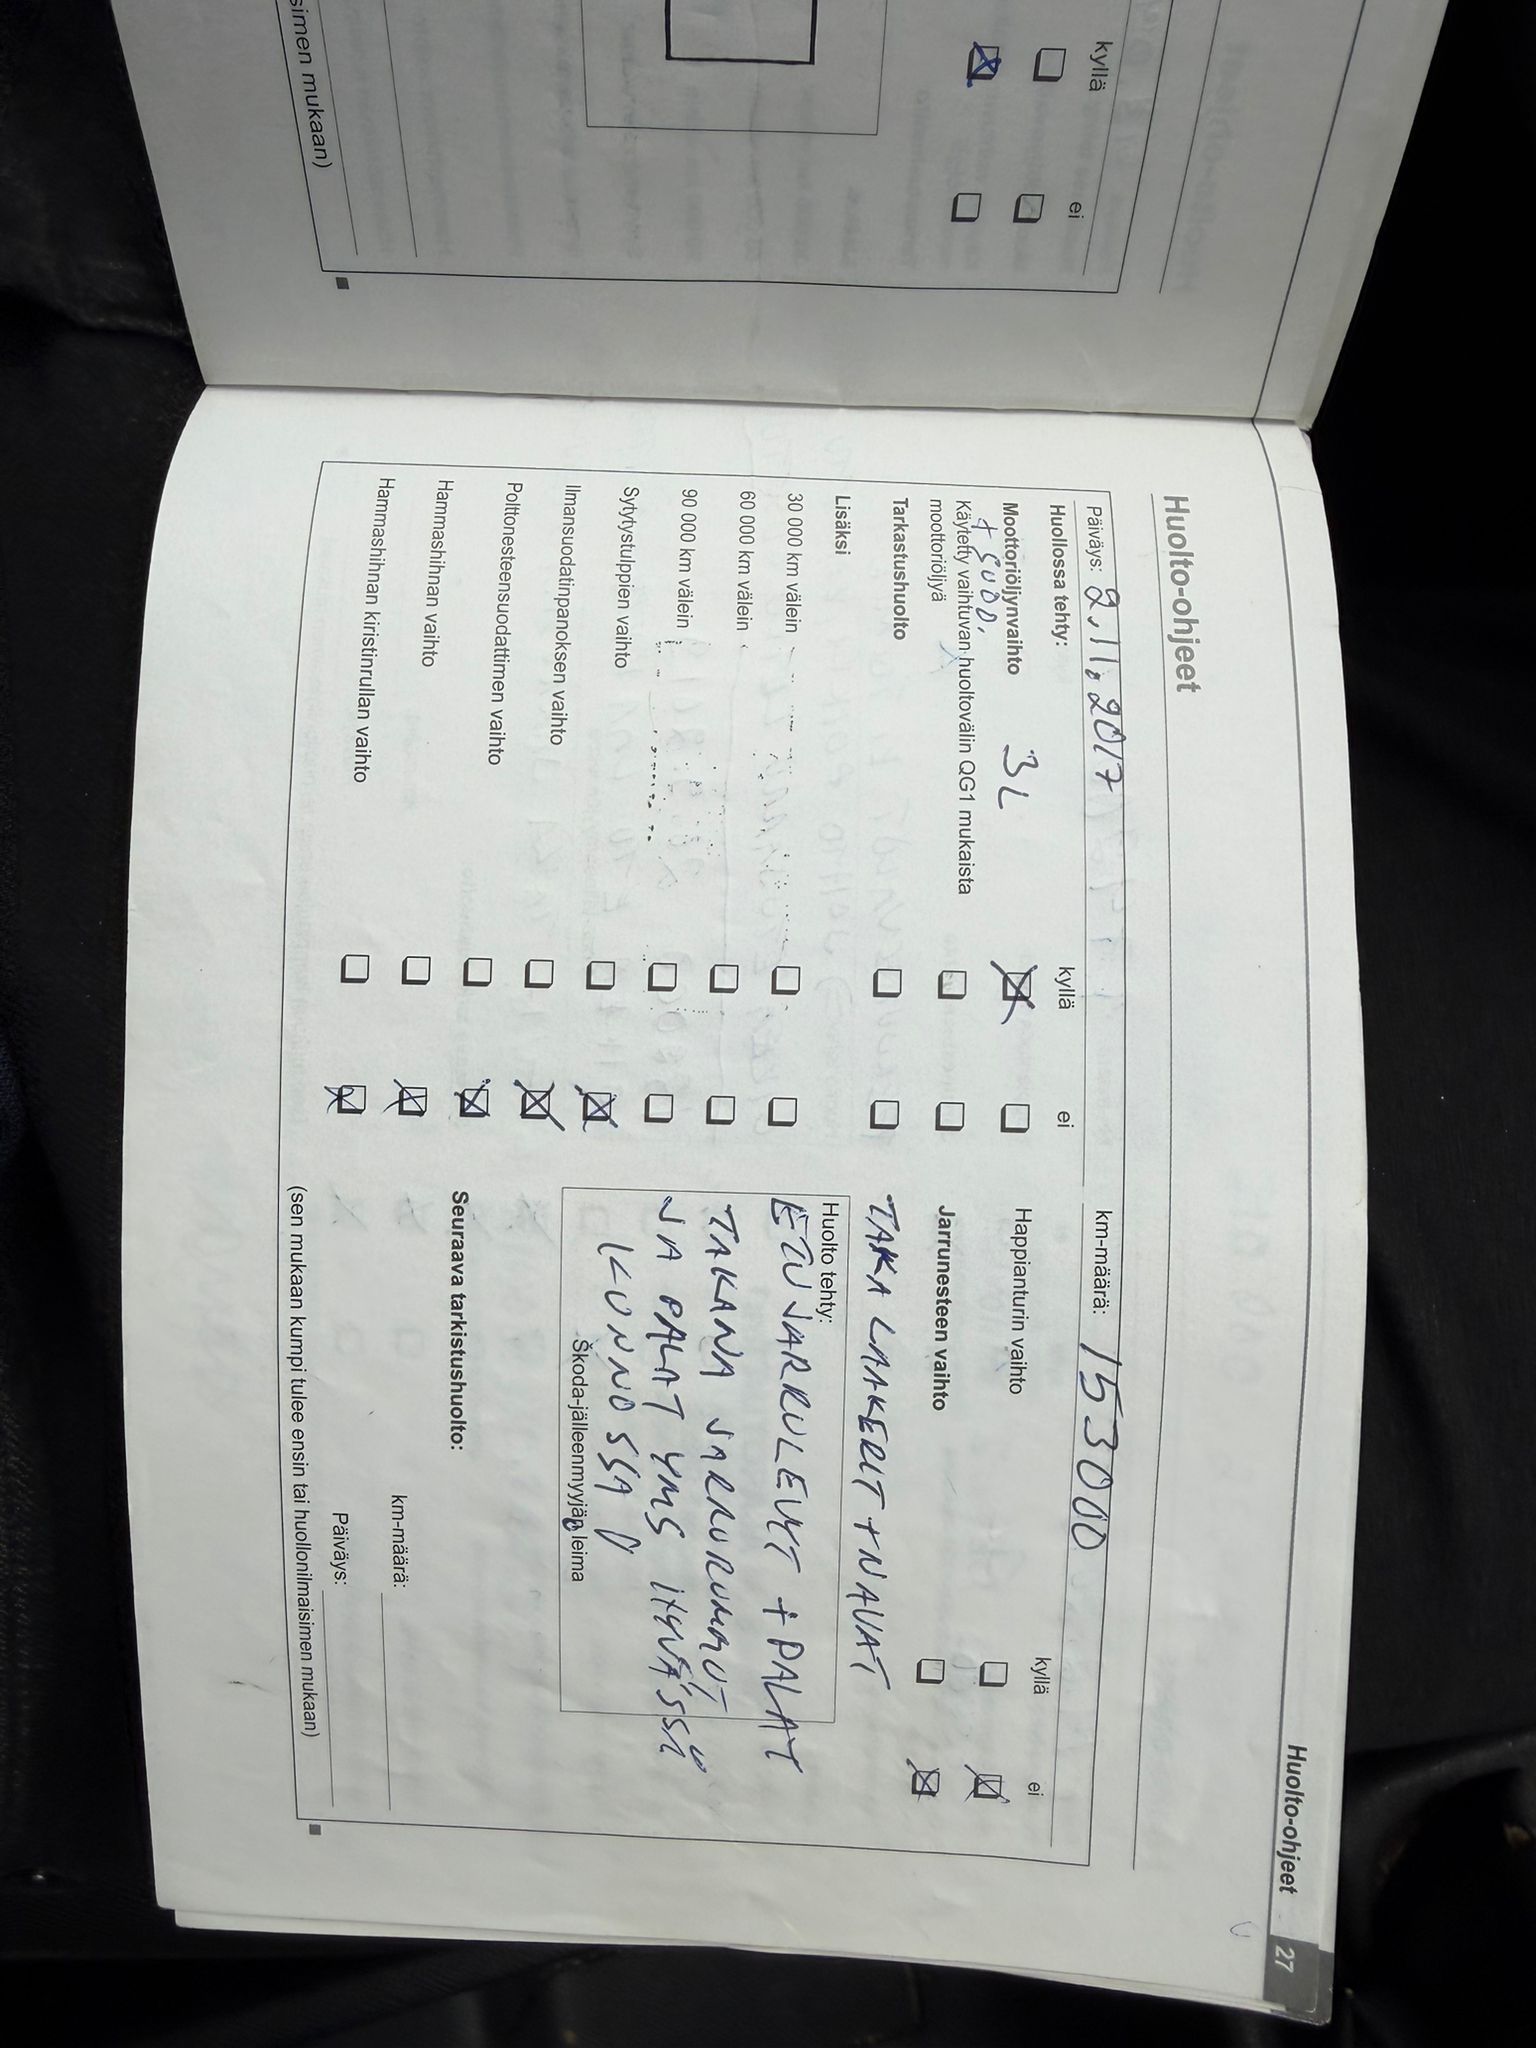 kyllä
ei
simen mukaan)
Huolto-ohjeet 27
Huolto-ohjeet
Päiväys: 2.11.2017
km-määrä: 153000
Huollossa tehty:
kyllä
ei
Moottoriöljynvaihto 3L
+ SUOD.
Käytetty vaihtuvan huoltovälin QG1 mukaista
moottoriöljyä
Tarkastushuolto
Lisäksi
30 000 km välein
60 000 km välein
90 000 km välein
Sytytystulppien vaihto
Ilmansuodatinpanoksen vaihto
Polttonesteensuodattimen vaihto
Hammashihnan vaihto
Hammashihnan kiristinrullan vaihto
kyllä
ei
Happianturin vaihto
Jarrunesteen vaihto
TAKA LAAKERIT + NAVAT
Huolto tehty:
ETUJARRULEVYT + PALAT
TAKANA JARRURUMMUT
JA PALAT YMS HYVÄSSÄ
KUNNOSSA
Škoda-jälleenmyyjän leima
Seuraava tarkistushuolto:
km-määrä:
Päiväys:
(sen mukaan kumpi tulee ensin tai huollonilmaisimen mukaan)